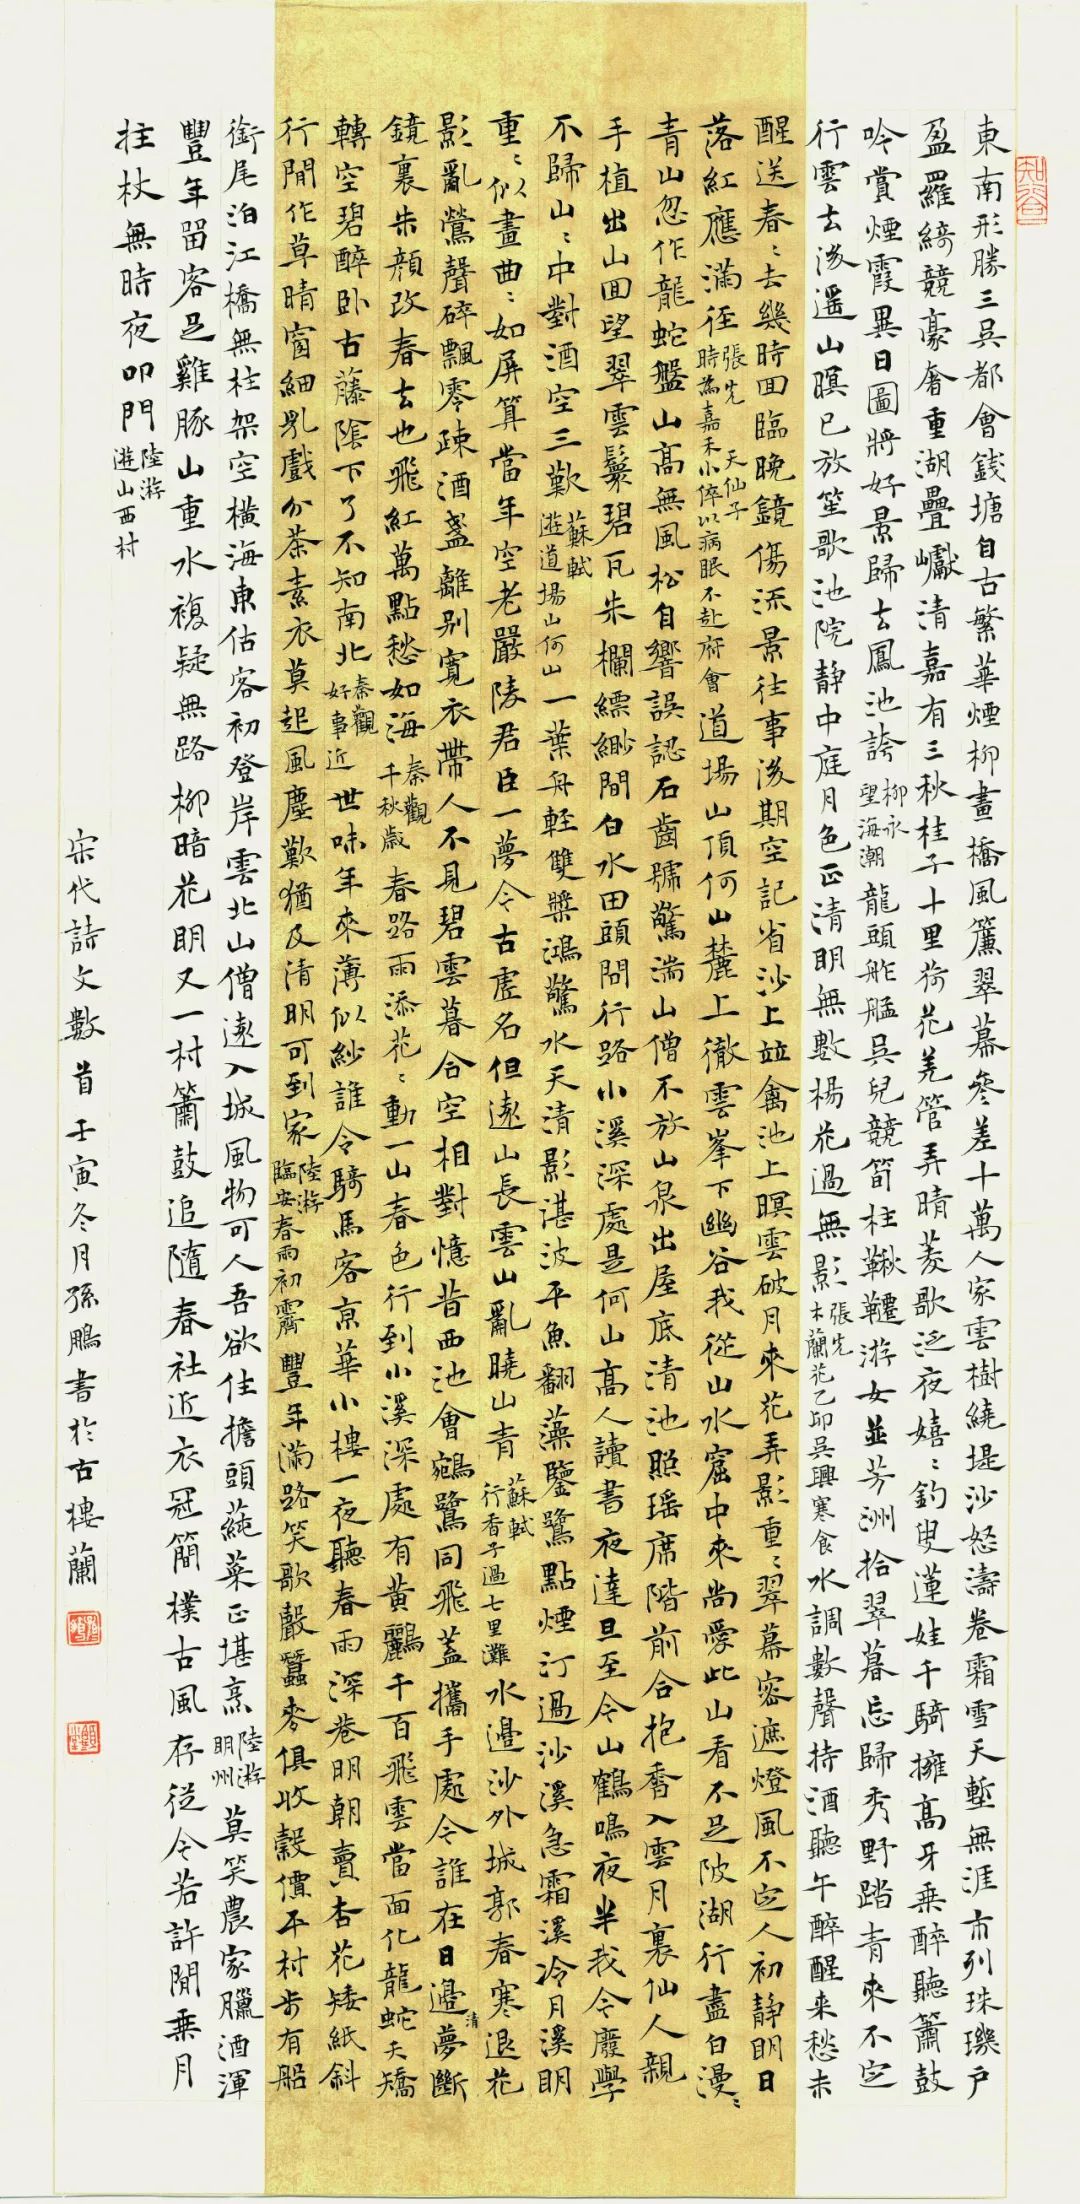 知〓
東南形勝三吳都會錢塘自古繁華煙柳畫橋風簾翠幕參差十萬人家雲樹繞堤沙怒濤卷霜雪天塹無涯市列珠璣戶
盈羅綺競豪奢重湖疊巘清嘉有三秋桂子十里荷花羌管弄晴菱歌泛夜嬉〻釣叟蓮娃千騎擁高牙乘醉聽簫鼓
吟賞煙霞異日圖將好景歸去鳳池誇 柳永望海潮 龍頭舴艋吳兒競筍柱鞦韆游女並芳洲拾翠暮忘歸秀野踏青來不定
行雲去後遙山暝已放笙歌池院靜中庭月色正清明無數楊花過無影 張先木蘭花乙卯吳興寒食 水調數聲持酒聽午醉醒來愁未
醒送春〻去幾時回臨晚鏡傷流景往事後期空記省沙上並禽池上暝雲破月來花弄影重〻翠幕密遮燈風不定人初靜明日
落紅應滿徑 張先天仙子時為嘉禾小倅以病眠不赴府會 道場山頂何山麓上徹雲峯下幽谷我從山水窟中來尚愛此山看不足陂湖行盡白漫〻
青山忽作龍蛇盤山高無風松自響誤認石齒號驚湍山僧不放山泉出屋底清池照瑤席階前合抱香入雲月裏仙人親
手植出山回望翠雲鬟碧瓦朱欄縹緲間白水田頭問行路小溪深處是何山高人讀書夜達旦至今山鶴鳴夜半我今廢學
不歸山〻中對酒空三歎 蘇軾遊道場山何山 一葉舟輕雙槳鴻驚水天清影湛波平魚翻藻鑒鷺點煙汀過沙溪急霜溪冷月溪明
重〻似畫曲〻如屏算當年空老嚴陵君臣一夢今古虛名但遠山長雲山亂曉山青 蘇軾行香子過七里灘 水邊沙外城郭春寒退花
影亂鶯聲碎飄零疎酒盞離別寬衣帶人不見碧雲暮合空相對憶昔西池會鵷鷺同飛蓋攜手處今誰在日邊清夢斷
鏡裏朱顏改春去也飛紅萬點愁如海 秦觀千秋歲 春路雨添花〻動一山春色行到小溪深處有黃鸝千百飛雲當面化龍蛇夭矯
轉空碧醉臥古藤陰下了不知南北 秦觀好事近 世味年來薄似紗誰令騎馬客京華小樓一夜聽春雨深巷明朝賣杏花矮紙斜
行閒作草晴窗細乳戲分茶素衣莫起風塵歎猶及清明可到家 陸游臨安春雨初霽 豐年滿路笑歌聲蠶麥俱收穀價平村步有船
銜尾泊江橋無柱架空橫海東估客初登岸雲北山僧遠入城風物可人吾欲住擔頭蒓菜正堪烹 陸游明州 莫笑農家臘酒渾
豐年留客足雞豚山重水複疑無路柳暗花明又一村簫鼓追隨春社近衣冠簡樸古風存從今若許閒乘月
拄杖無時夜叩門 陸游遊山西村
宋代詩文數首壬寅冬月孫鵬書於古樓蘭